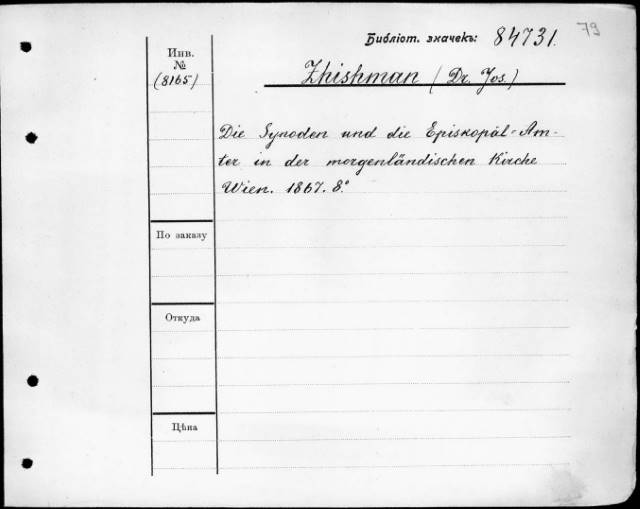 79
Библіот. значекъ: 84731.
Инв.
№
(8165)
Zhishman (Dr. Jos.)
Die Synoden und die Episkopal-Äm-
ter in der morgenländischen Kirche
Wien. 1867. 8.°
По заказу
Откуда
Цѣна